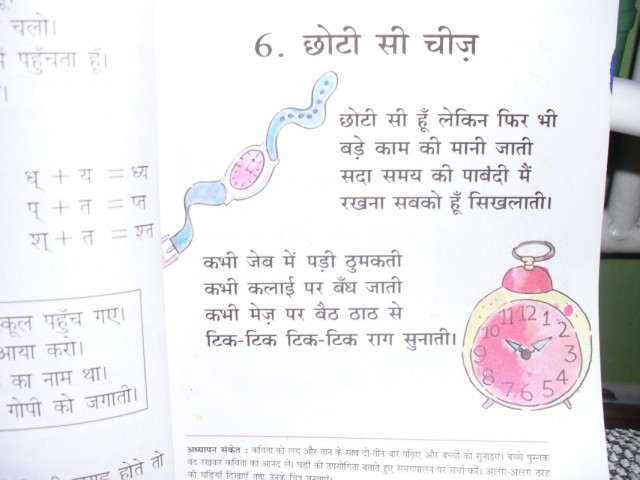 चलो।
पहुँचता हूँ।
ध् + य = ध्य
प् + त = प्त
श् + त = श्त
कूल पहुँच गए।
आया करो।
का नाम था।
गोपी को जगाती।
होते तो
6. छोटी सी चीज़
छोटी सी हूँ लेकिन फिर भी
बड़े काम की मानी जाती
सदा समय की पाबंदी मैं
रखना सबको हूँ सिखलाती।
कभी जेब में पड़ी ठुमकती
कभी कलाई पर बँध जाती
कभी मेज़ पर बैठ ठाठ से
टिक-टिक टिक-टिक राग सुनाती।
11 12 1
10 2
9 3
8 4
7 6 5
अध्यापन संकेत : कविता को लय और तान के साथ दो-तीन बार पढ़िए और बच्चों को सुनाइए। बच्चे पुस्तक
बंद रखकर कविता का आनंद लें। घड़ी की उपयोगिता बताते हुए समयपालन पर चर्चा करें। अलग-अलग तरह
की घड़ियाँ दिखाएँ तथा उनके चित्र बनवाएँ।